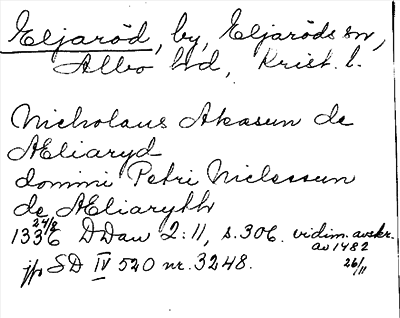 Eljaröd, by, Eljaröds sn,
Albo hd, Krist. l.
Nicholaus Akasun de
Æliaryd
domini Petri Niclessun
de Æliaryth
24/8
1336 DDaw 2:11, s. 306. vidim. avskr.
av 1482
26/11
jfr SD IV 520 nr. 3248.